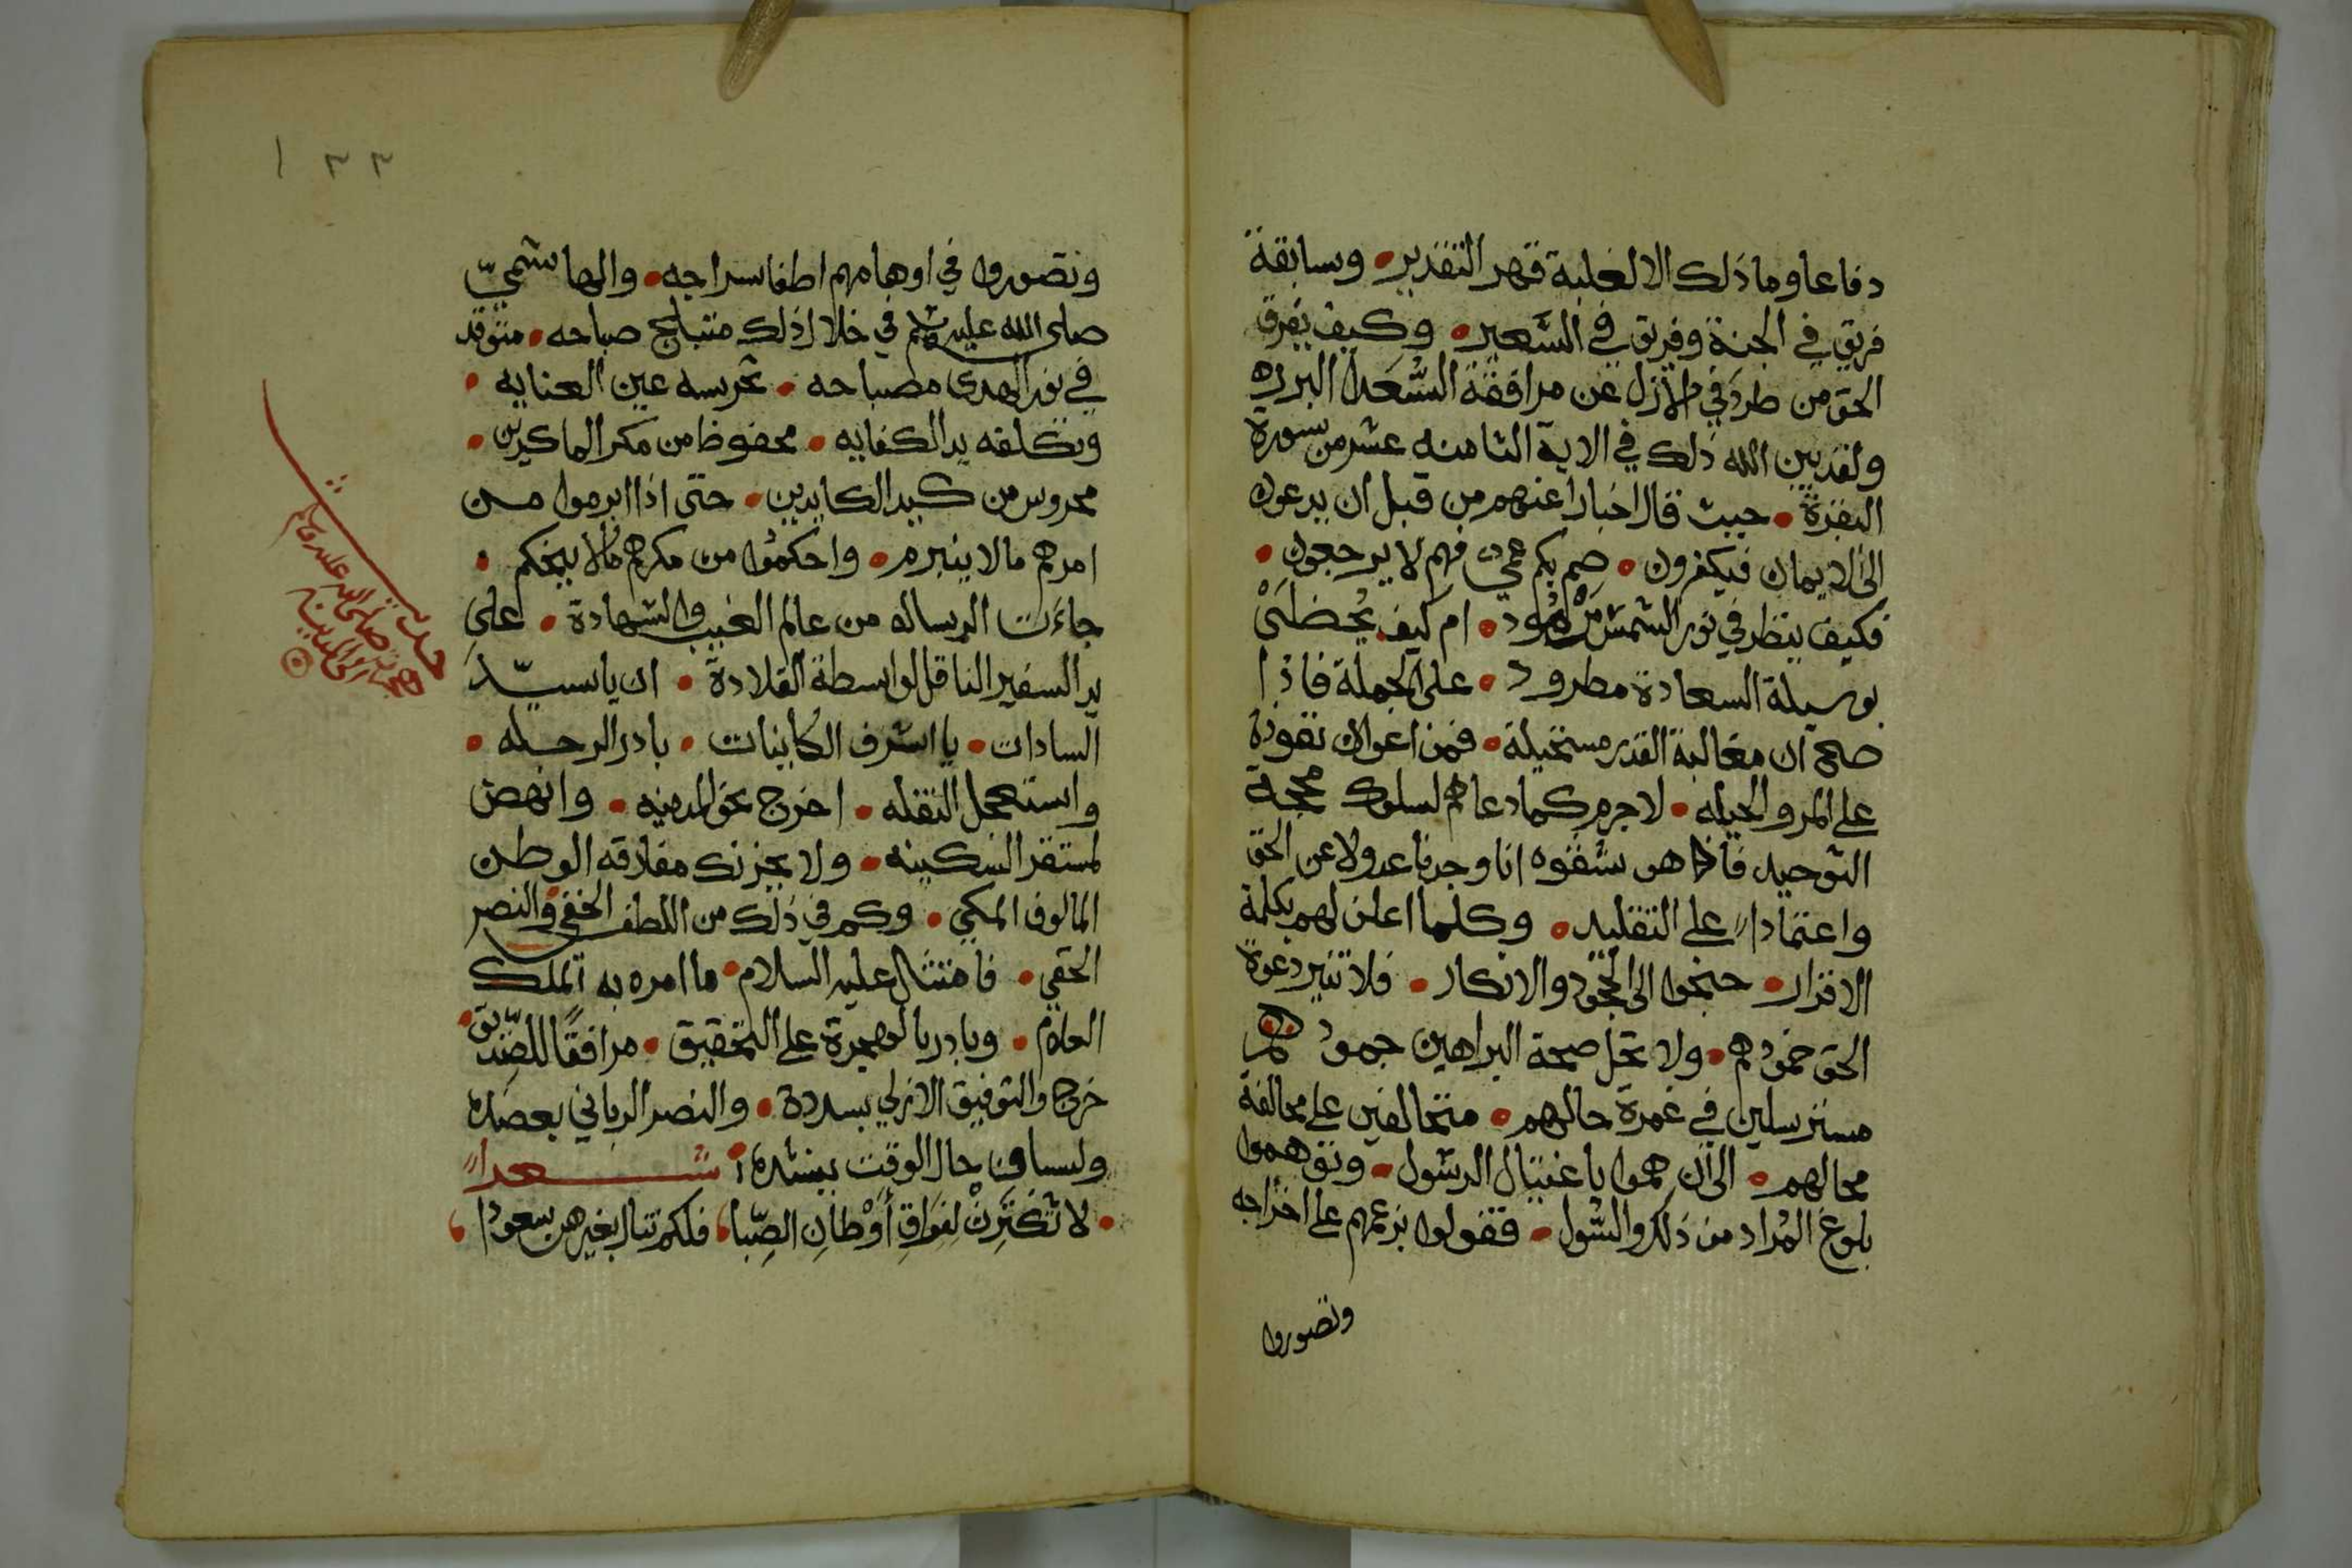 دفاعا وما ذلك الا لغلبة قهر التقدير • وسابقة
فريق في الجنة وفريق في السَّعير • وكيف يفرق
الحق من طرد في الأزل عن مرافقة السُّعَدا البرره
ولقد بين الله ذلك في الاية الثامنه عشر من سورة
البقرة • حيث قال اخبارا عنهم من قبل ان يدعون
الى الايمان فيكفرون • صم بكم عمي فهم لا يرجعون •
فكيف ينظر في نور الشمس • ام كيف يُحظى
بوسيلة السعادة مطرود • على الجملة فاذا
صح ان مغالبة القدر مستحيلة • فمن اعوان نفوذه
على المرو الحيله • لا جرم كما دعاهم لسلوك محجة
التوحيد فاذا هم شفوه انا وجدنا عدولا عن الحق
واعتمادا على التقليد • وكلما اعلن لهم بكلمة
الاقرار • جنحوا الى الجحود والانكار • فلا تنير دعوة
الحق خمودهم • ولا تحل صحة البراهين جمودهم
مسترسلين في غمرة حالهم • متحالفين على مخالفة
محالهم • الى ان هموا باغتيال الرسول • وتوهموا
بلوغ المُراد من ذلك والسُّول • فقفولوا بزعمهم على اخراجه
وتصوروا
١٣٣
وتصوروا في اوهامهم اطفا سراجه • والهاشميّ
صلى الله عليه وسلم في خلال ذلك متبلج صباحه • متوقد
في نور الهدى مصباحه • تحرسه عين العنايه •
وتكلفه يد الكفايه • محفوظا من مكر الماكرين •
محروس من كيد الكايدين • حتى اذا ابرموا من
امرهم ما لا ينبرم • واحكموا من مكرهم ما لا ينحكم •
جاءَت الرساله من عالم الغيب والشهادة • على
يد السفير الناقل لواسطة القلادة • ان يا سيّد
السادات • يا اشرف الكاينات • بادر الرحله •
واستعجل النقله • اخرج نحو المدينه • وانهض
لمستقر السكينه • ولا يحزنك مفارقه الوطن
المالوف المكي • وكم في ذلك من اللطف الخفي والنصر
الحقي • فامتثال عليه السلام • ما امره به الملك
العلام • وبادر بالهجرة على التحقيق • مرافقًا للصّديق •
خرج والتوفيق الازلي يسدده • والنصر الرباني يعضده
ولسان حال الوقت ينشده • شعرا
• لا تَكْتَرِثْ لفراقِ أَوْطانِ الصِّبا، فلكم تنال بغيرهن سعودا،